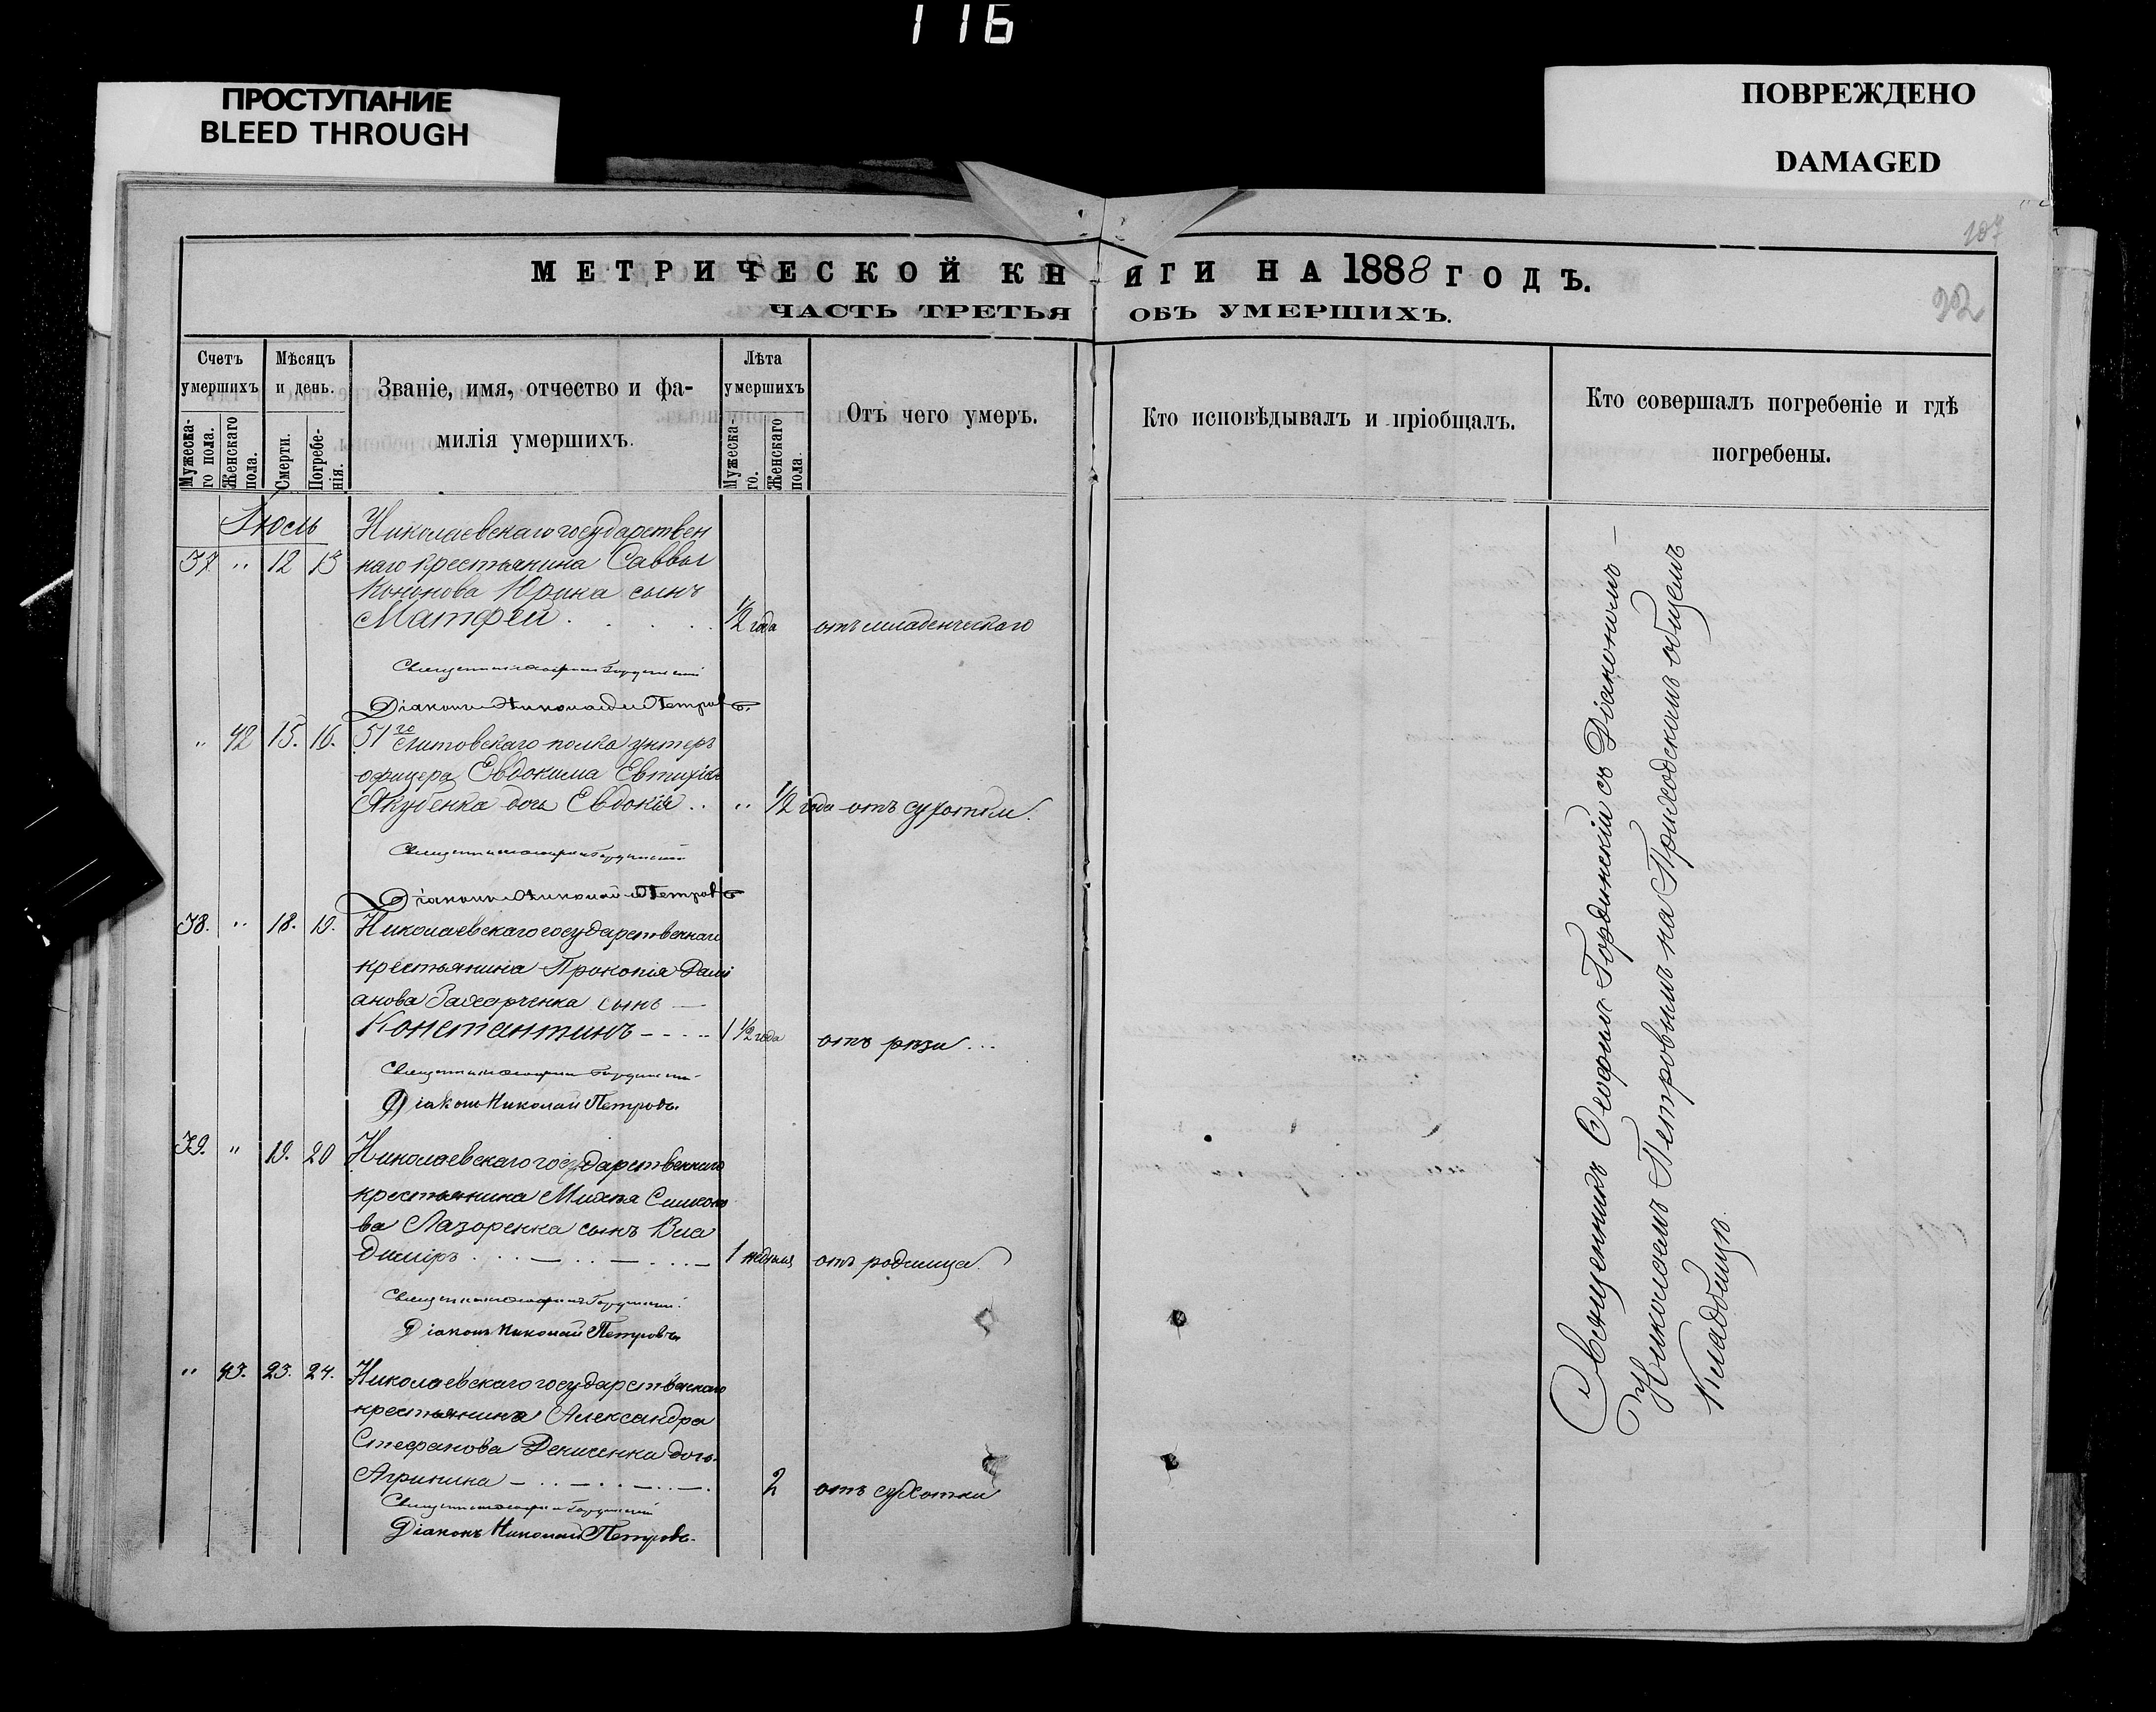 116
ПРОСТУПАНИЕ
BLEED THROUGH
ПОВРЕЖДЕНО
DAMAGED
107
92
МЕТРИЧЕСКОЙ КНИГИ НА 1888 ГОДЪ.
ЧАСТЬ ТРЕТЬЯ ОБЪ УМЕРШИХЪ.
Счетъ умершихъ.
Мужеска-
го пола.
Женскаго
пола.
Мѣсяцъ
и день.
Смерти.
Погребе-
нія.
Званіе, имя, отчество и фа-
милія умершихъ.
Лѣта
умершихъ
Мужеска-
го.
Женскаго
пола.
Отъ чего умеръ.
Кто исповѣдывалъ и пріобщалъ.
Кто совершалъ погребеніе и гдѣ
погребены.
Іюль
Николаевскаго государствен
37 " 12 13 наго крестьянина Саввы
Кононова Юрина сынъ
Матфей . . . ½ года отъ младенческаго
Діаконъ Николай Петровъ.
" 42 15. 16. 51го Литовскаго полка унтеръ
офицера Евдокима Евтихіева
Якубенка дочь Евдокія .. " ½ года отъ сухотки.
Діаконъ Николай Петровъ
38. " 18. 19. Николаевскаго государственнаго
крестьянина Прокопія Дамі
анова Захарченка сынъ —
Константинъ - - - - 1 ½ года отъ рѣзи ...
Діаконъ Николай Петровъ.
39. " 19. 20 Николаевскаго государственнаго
крестьянина Михея Симеоно
ва Лазоренка сынъ Вла
диміръ . . . — . . — . . . — 1 недѣля отъ родимца.
Діаконъ Николай Петровъ
" 43. 23. 24. Николаевскаго государственнаго
крестьянина Александра
Стефанова Денисенка дочь
Агрипина — . . — . . — . . — . 2 отъ сухотки
Діаконъ Николай Петровъ.
Священникъ Софроній Гординскій съ Діакономъ —
Николаемъ Петровымъ на Приходскомъ общемъ
Кладбищѣ.